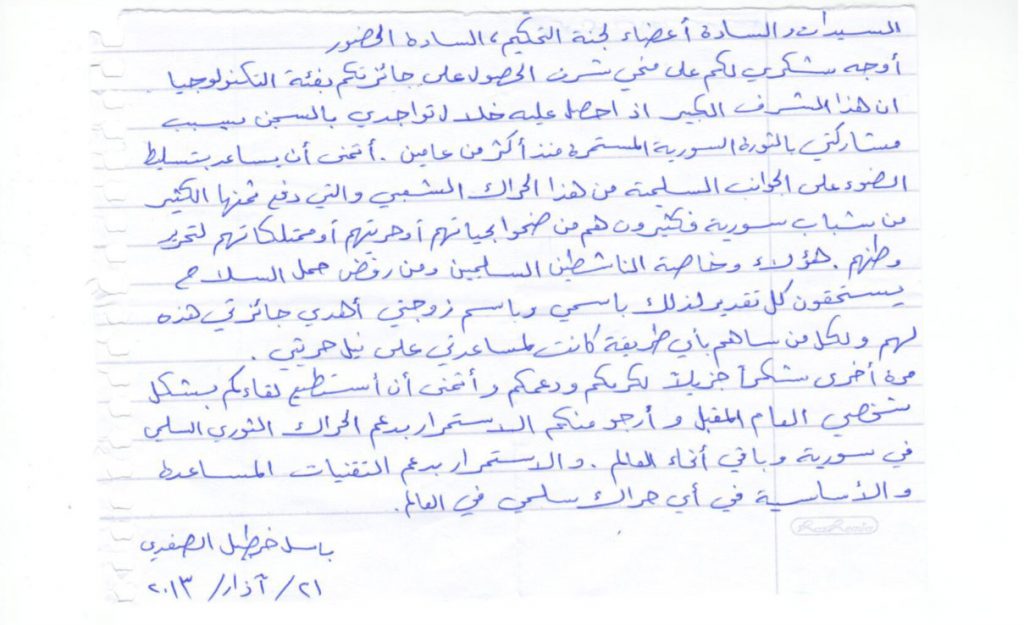 السيدات والسادة أعضاء لجنة التحكيم، السادة الحضور
أوجه شكري لكم على منحي شرف الحصول على جائزتكم بفئة التكنولوجيا
ان هذا المشرف الكبير اذ احصل عليه خلال تواجدي بالسجن بسبب
مشاركتي بالثورة السورية المستمرة منذ أكثر من عامين . أتمنى أن يساعد بتسليط
الضوء على الجوانب السلمية من هذا الحراك الشعبي والتي دفع ثمنها الكثير
من شباب سورية فكثيرون هم من ضحوا بحياتهم أو حريتهم أو ممتلكاتهم لتحرير
وطنهم . هؤلاء وخاصة الناشطين السلميين ومن رفض حمل السلاح
يستحقون كل تقدير لذلك باسمي وباسم زوجتي أهدي جائزتي هذه
لهم ولكل من ساهم بأي طريقة كانت لمساعدتي على نيل حريتي .
مرة أخرى شكراً جزيلاً لكرمكم ودعمكم وأتمنى أن أستطيع لقاءكم بشكل
شخصي العام المقبل وأرجو منكم الاستمرار بدعم الحراك الثوري السلمي
في سورية وباقي أنحاء العالم . والاستمرار بدعم التقنيات المساعدة
والأساسية في أي حراك سلمي في العالم.
باسل خرطبيل الصفدي
٢١/ آذار/ ٢٠١٣